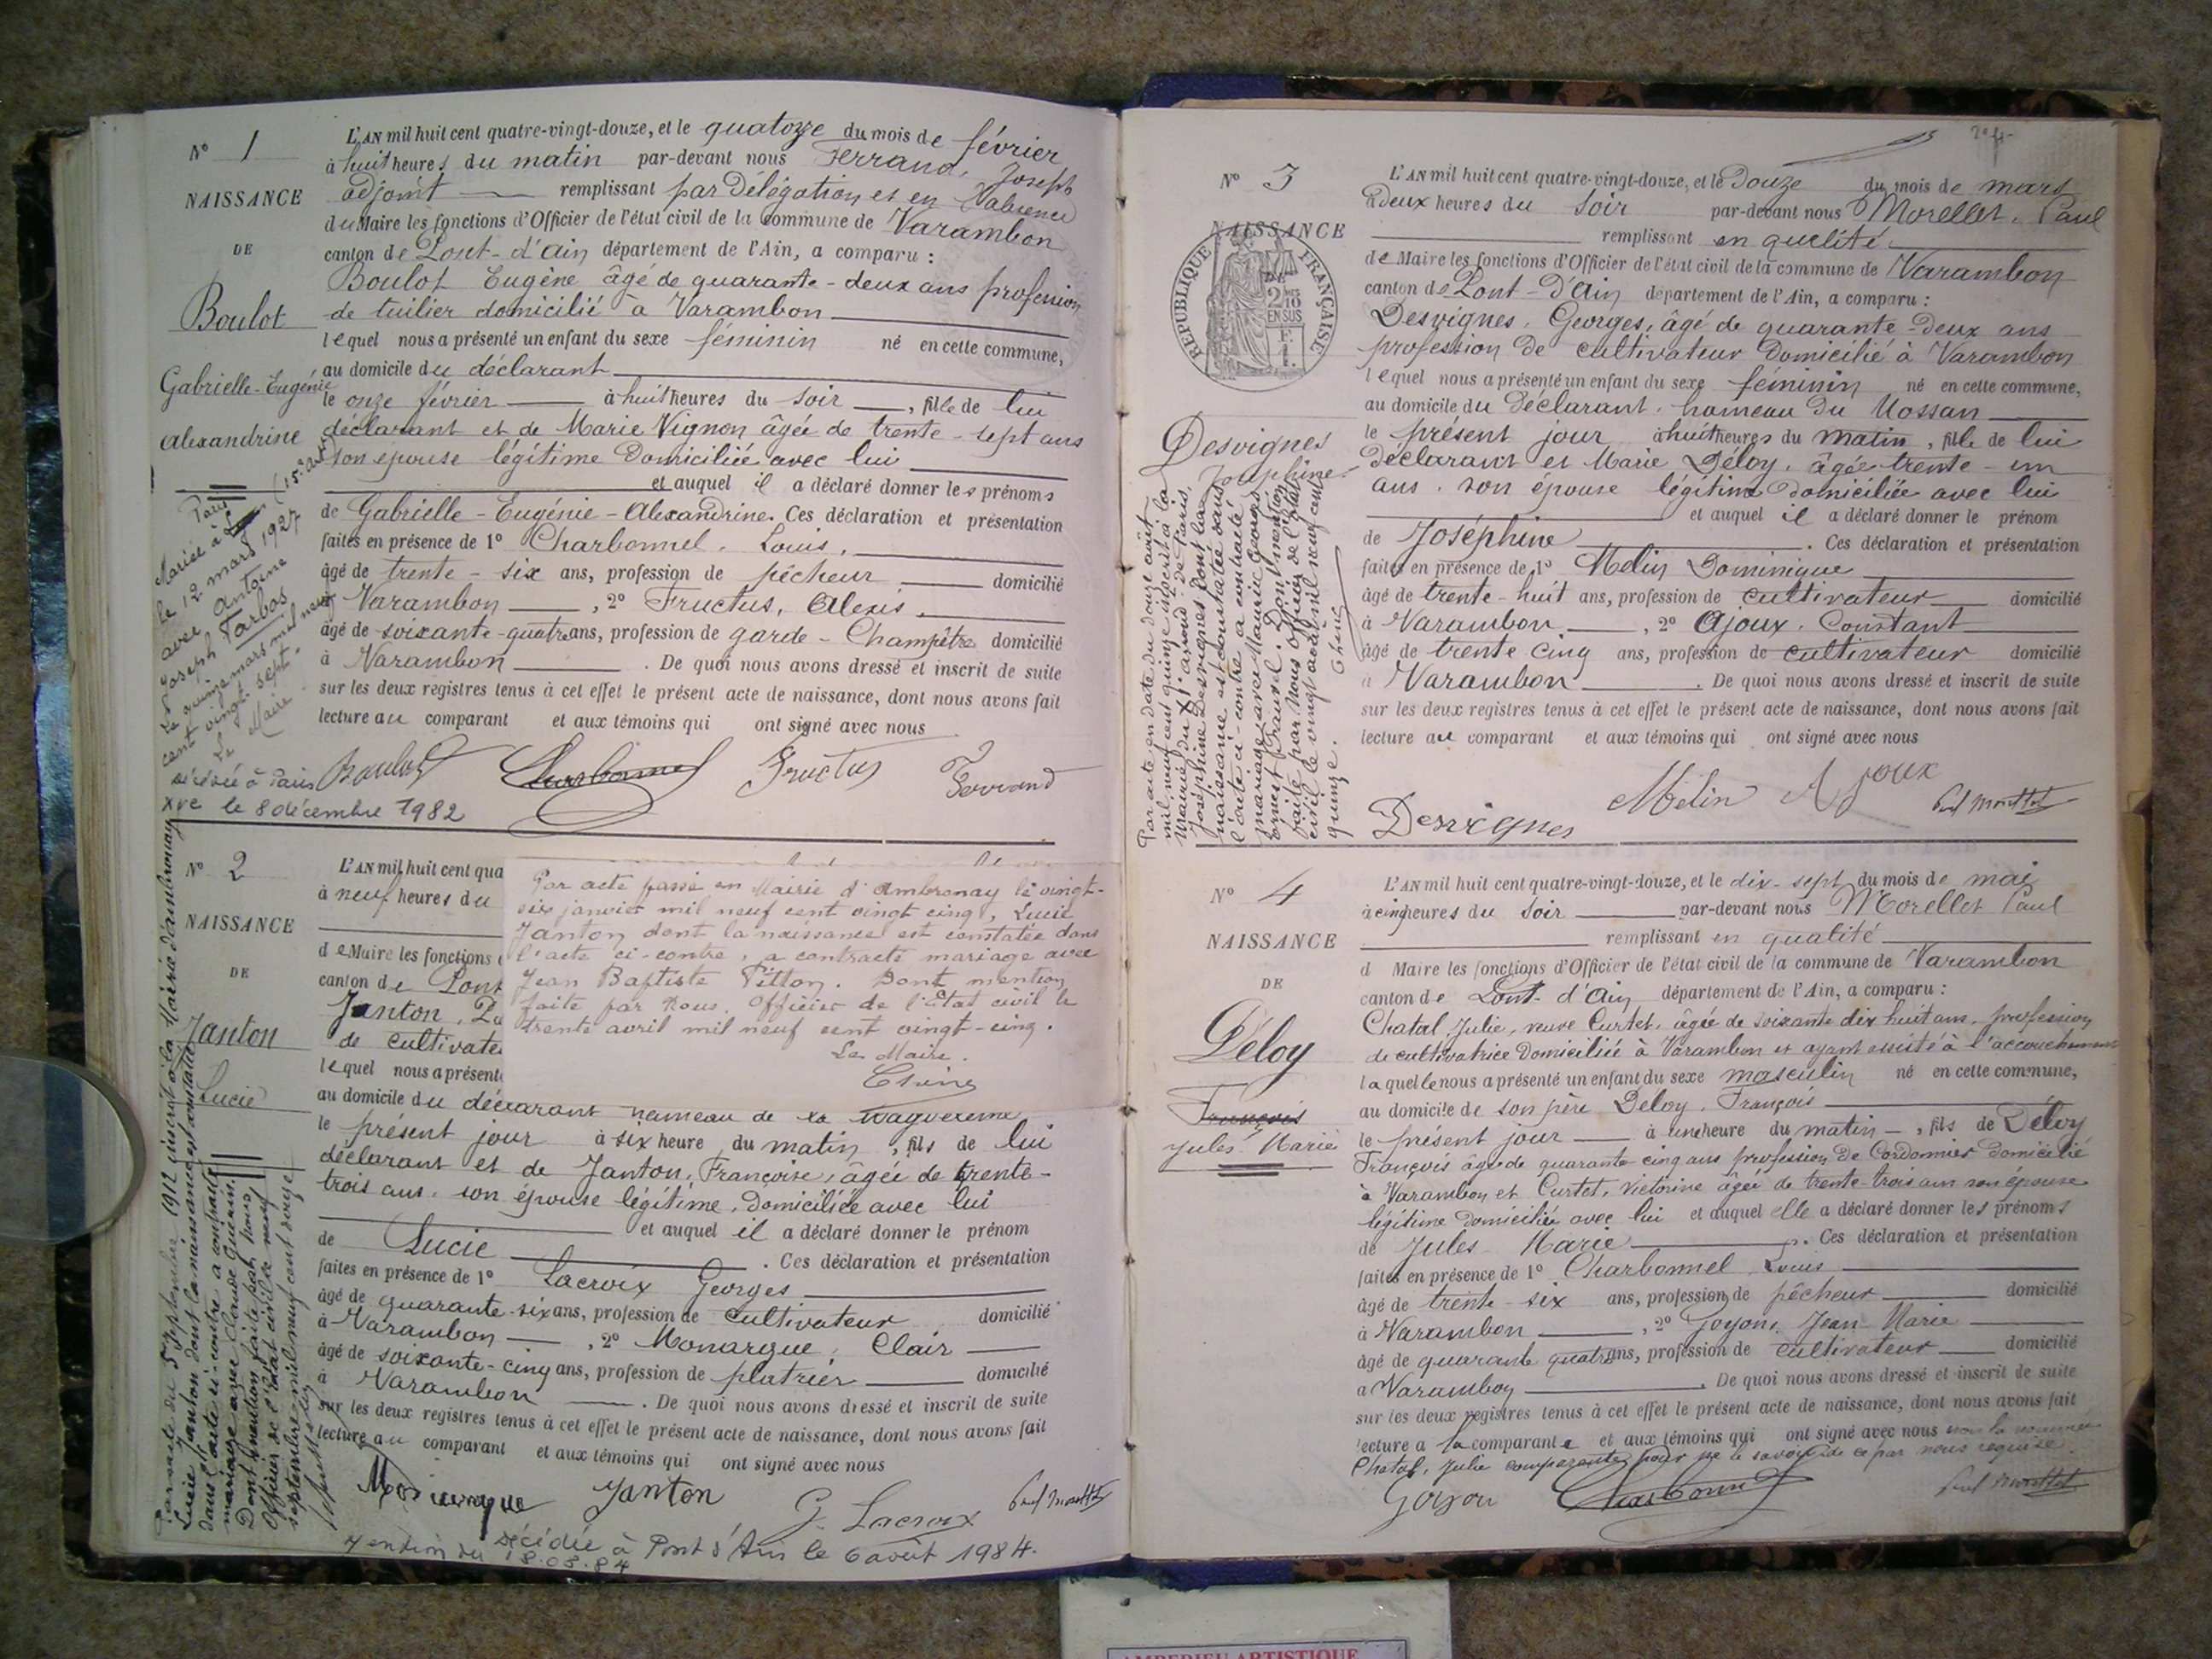 N° 1
NAISSANCE
DE
Boulot
Gabrielle-Eugénie
Alexandrine
L'AN mil huit cent quatre-vingt-douze, et le quatorze du mois de février
à huit heures du matin par-devant nous Ferrand, Joseph
adjoint remplissant par Délégation et en l'absence
du Maire les fonctions d'Officier de l'état civil de la commune de Varambon
canton de Pont-d'Ain département de l'Ain, a comparu :
Boulot Eugène âgé de quarante-deux ans profession
de tuilier domicilié à Varambon
lequel nous a présenté un enfant du sexe féminin né en cette commune,
au domicile du déclarant
le onze février à huit heures du soir, fille de lui
déclarant et de Marie Vignon âgée de trente-sept ans
son épouse légitime Domiciliée avec lui
et auquel il a déclaré donner les prénoms
de Gabrielle-Eugénie-Alexandrine. Ces déclaration et présentation
faites en présence de 1° Charbonnel, Louis,
âgé de trente-six ans, profession de pêcheur domicilié
à Varambon, 2° Fructus, Alexis,
âgé de soixante-quatre ans, profession de garde-Champêtre domicilié
à Varambon. De quoi nous avons dressé et inscrit de suite
sur les deux registres tenus à cet effet le présent acte de naissance, dont nous avons fait
lecture au comparant et aux témoins qui ont signé avec nous
Boulot Charbonnel Fructus Ferrand
Mariée à Paris (15e arrt)
le 12 mars 1927
avec Antoine
Joseph Tarbos
le quinze mars mil neuf
cent vingt-sept.
Le Maire
Décédée à Paris
XVe le 8 décembre 1982
N° 2
NAISSANCE
DE
Janton
Lucie
L'AN mil huit cent qua
à neuf heures du
de Maire les fonctions
canton de Pont
Janton, Pa
de cultivate
lequel nous a présent
Par acte passé en Mairie d'Ambronay le vingt-
six janvier mil neuf cent vingt cinq, Lucie
Janton dont la naissance est constatée dans
l'acte ci-contre, a contracté mariage avec
Jean Baptiste Pitton. Dont mention
faite par Nous. Officier de l'Etat civil le
trente avril mil neuf cent vingt-cinq.
Le Maire.
au domicile du déclarant hameau de la
le présent jour à six heure du matin, fils de lui
déclarant et de Janton, Françoise, âgée de trente-
trois ans, son épouse légitime, Domiciliée avec lui
et auquel il a déclaré donner le prénom
de Lucie. Ces déclaration et présentation
faites en présence de 1° Lacroix Georges
âgé de quarante-six ans, profession de cultivateur domicilié
à Varambon, 2° Monarque, Clair
âgé de soixante-cinq ans, profession de platrier domicilié
à Varambon. De quoi nous avons dressé et inscrit de suite
sur les deux registres tenus à cet effet le présent acte de naissance, dont nous avons fait
lecture au comparant et aux témoins qui ont signé avec nous
Monarque Janton G. Lacroix Paul Morellet
Par acte du 5 septembre 1912 inscrit à la Mairie d'Ambronay
Lucie Janton dont la naissance est constatée
dans l'acte ci-contre a contracté
mariage avec Claude Guérin.
Dont mention faite par nous
Officier de l'état civil le neuf
septembre mil neuf cent douze
Décédée à Pont d'Ain le 6 août 1984.
Mention du 18.08.84
N° 3
NAISSANCE
DE
RÉPUBLIQUE FRANÇAISE
2 10
EN SUS
Desvignes
Joséphine
L'AN mil huit cent quatre-vingt-douze, et le Douze du mois de mars
à deux heures du soir par-devant nous Morellet, Paul
remplissant en quelité
de Maire les fonctions d'Officier de l'état civil de la commune de Varambon
canton de Pont-D'Ain département de l'Ain, a comparu :
Desvignes, Georges, âgé de quarante-deux ans
profession de cultivateur Domicilié à Varambon
lequel nous a présenté un enfant du sexe féminin né en cette commune,
au domicile du Déclarant, hameau du Mossan
le présent jour à huit heures du matin, fille de lui
Déclarant et Marie Déloy, âgée trente-un
ans, son épouse légitime domiciliée avec lui
et auquel il a déclaré donner le prénom
de Joséphine. Ces déclaration et présentation
faites en présence de 1° Melin Dominique
âgé de trente-huit ans, profession de cultivateur domicilié
à Varambon, 2° Ajoux, Constant
âgé de trente cinq ans, profession de cultivateur domicilié
à Varambon. De quoi nous avons dressé et inscrit de suite
sur les deux registres tenus à cet effet le présent acte de naissance, dont nous avons fait
lecture au comparant et aux témoins qui ont signé avec nous
Desvignes Mélin Ajoux Paul Morellet
Par acte en date du douze août
mil neuf cent quinze inscrit à la
Mairie du arrond de Paris,
Joséphine Desvignes dont la
naissance est constatée dans
l'acte ci-contre a contracté
mariage avec Maurice Georges
Ernest Dont mention
faite par Nous Officier de l'état
civil le vingt août mil neuf cent
quinze.
N° 4
NAISSANCE
DE
Déloy
François
Jules Marie
L'AN mil huit cent quatre-vingt-douze, et le dix-sept du mois de mai
à cinq heures du soir par-devant nous Morellet Paul
remplissant en qualité
d Maire les fonctions d'Officier de l'état civil de la commune de Varambon
canton de Pont-d'Ain département de l'Ain, a comparu :
Chatal Julie, veuve Curtet, âgée de soixante dix huit ans, profession
de cultivatrice Domiciliée à Varambon et ayant assisté à l'accouchement
laquelle nous a présenté un enfant du sexe masculin né en cette commune,
au domicile de son père Déloy, François
le présent jour à une heure du matin, fils de Déloy
François âgé de quarante cinq ans profession De Cordonnier domicilié
à Varambon et Curtet, Victorine âgée de trente-trois ans son épouse
légitime Domiciliée avec lui et auquel elle a déclaré donner les prénoms
de Jules-Marie. Ces déclaration et présentation
faites en présence de 1° Charbonnel Louis
âgé de trente-six ans, profession de pêcheur domicilié
à Varambon, 2° Goyon, Jean Marie
âgé de quarante quatre ans, profession de cultivateur domicilié
à Varambon. De quoi nous avons dressé et inscrit de suite
sur les deux registres tenus à cet effet le présent acte de naissance, dont nous avons fait
lecture a la comparante et aux témoins qui ont signé avec nous non la nommée
Chatal, Julie comparante pour ne le savoir de ce par nous requise
Goyon Charbonnel Paul Morellet
AMBERIEU ARTISTIQUE